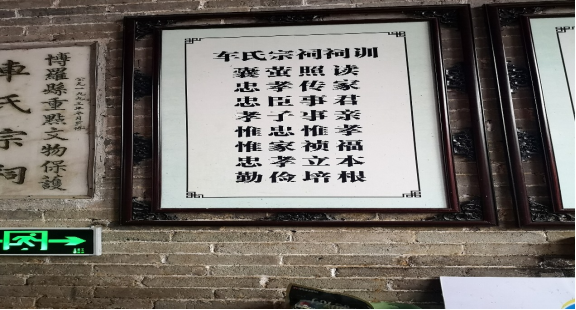 车氏宗祠祠训
囊萤照读
忠孝传家
忠臣事君
孝子事亲
惟忠惟孝
惟家祯福
忠孝立本
勤俭培根
博羅縣重點文物保護
車氏宗祠